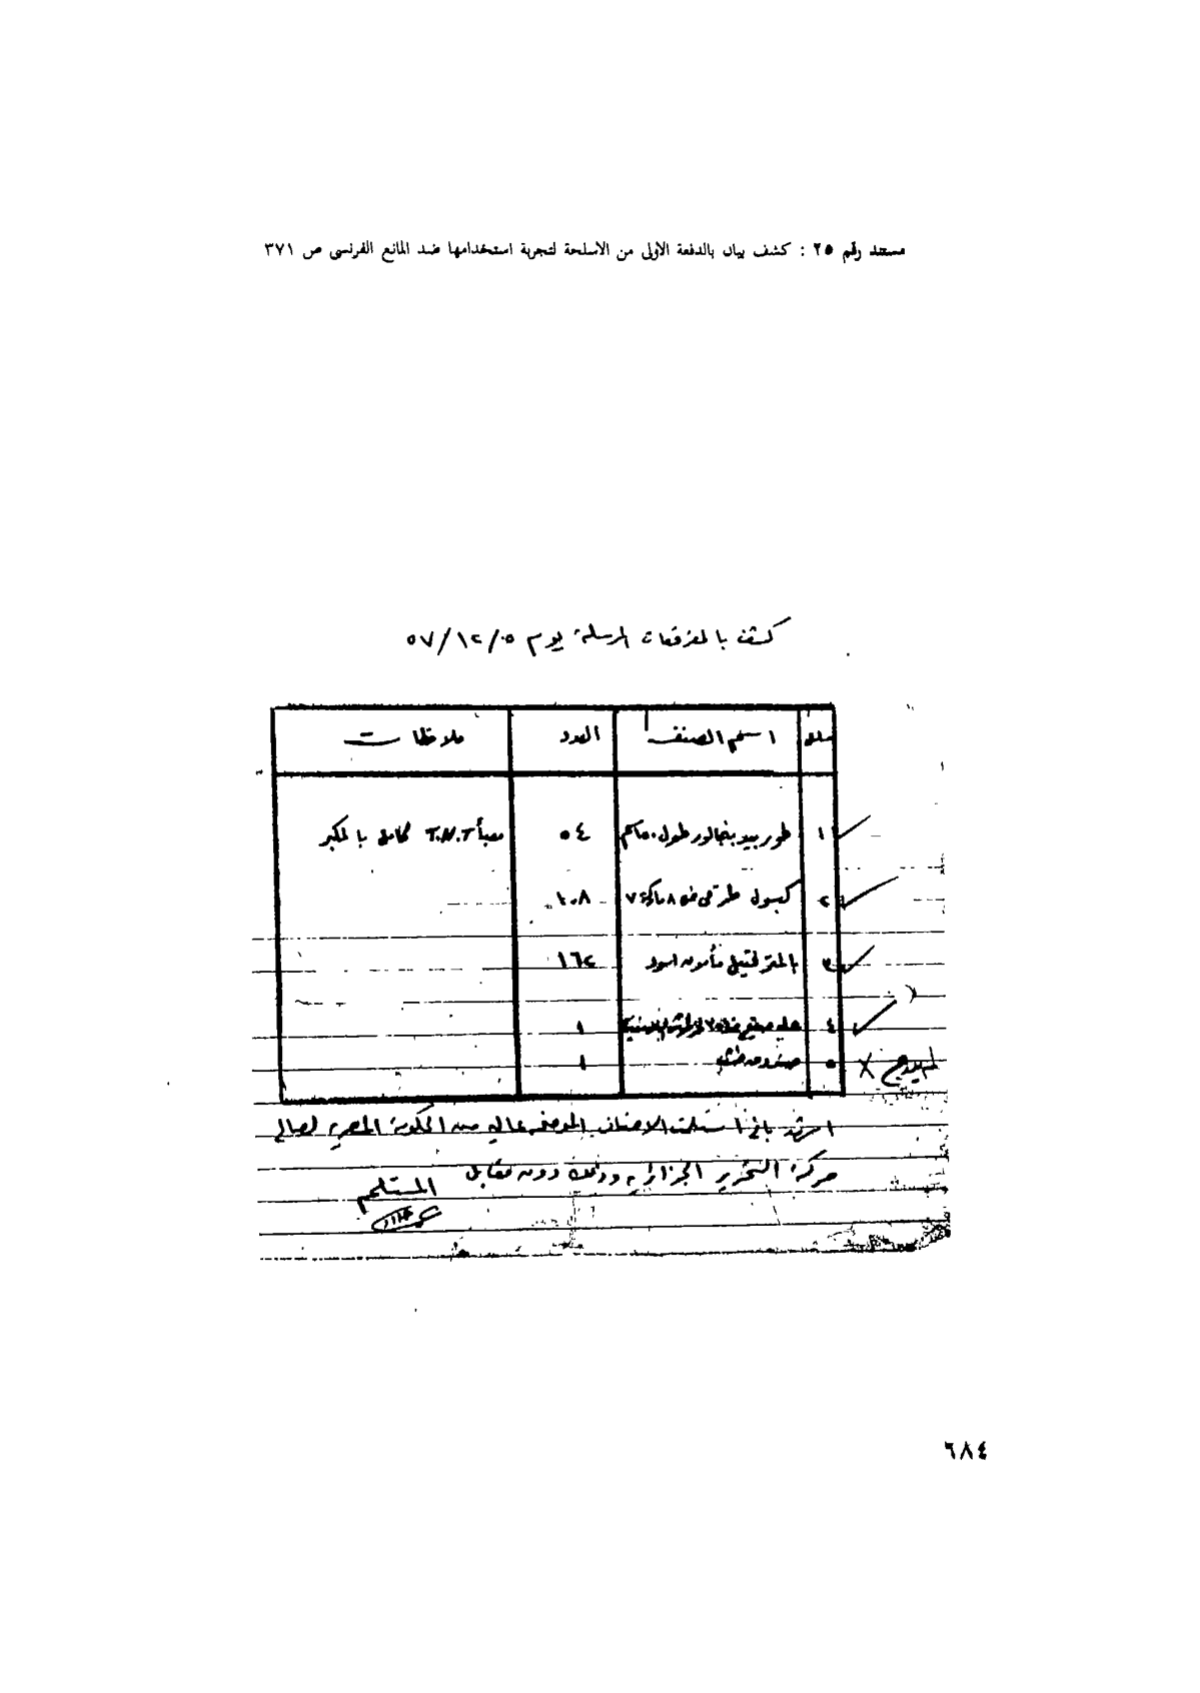 مستند رقم ٢٥ : كشف بيان بالدفعة الاولى من الاسلحة لتجربة استخدامها ضد المانع الفرنسى ص ٣٧١
كشف بالمفرقعات المرسلة يوم ٥/١٢/٥٧
اسم الصنف العدد ملاحظات
١ طوربيد بنجالور طول ٥٤ معبأ T.N.T كامل بالمكبر
٢ كبسول طرقى ١٠٨
٣ بالمتر فتيل مأمون اسود ١٦٢
٤ علبه صفيح ١
٥ صندوق خشب ١
اشهد بانى استلمت الاصناف الموضحه عاليه من الحكومة المصريه لصالح
حركة التحرير الجزائريه وذلك دون مقابل
المستلم
٦٨٤